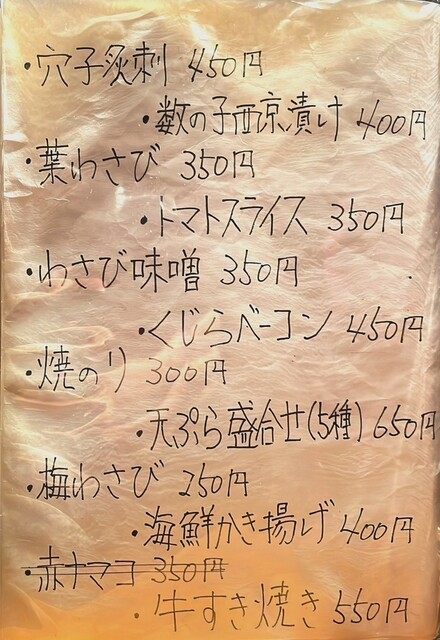 ・穴子炙刺 450円
・数の子西京漬け 400円
・葉わさび 350円
・トマトスライス 350円
・わさび味噌 350円
・くじらベーコン 450円
・焼のり 300円
・天ぷら盛合せ(5種) 650円
・梅わさび 250円
・海鮮かき揚げ 400円
・赤ナマコ 350円
・牛すき焼き 550円